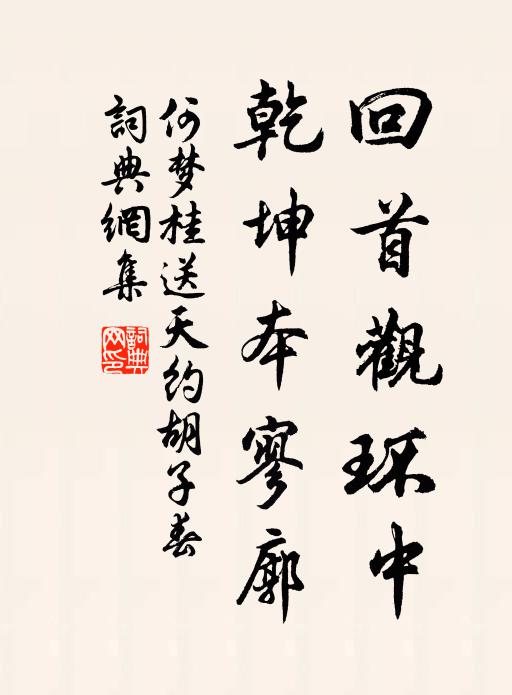 回首觀环中
乾坤本寥廓
何梦桂送天約胡子春
詞典網集
詞典網印